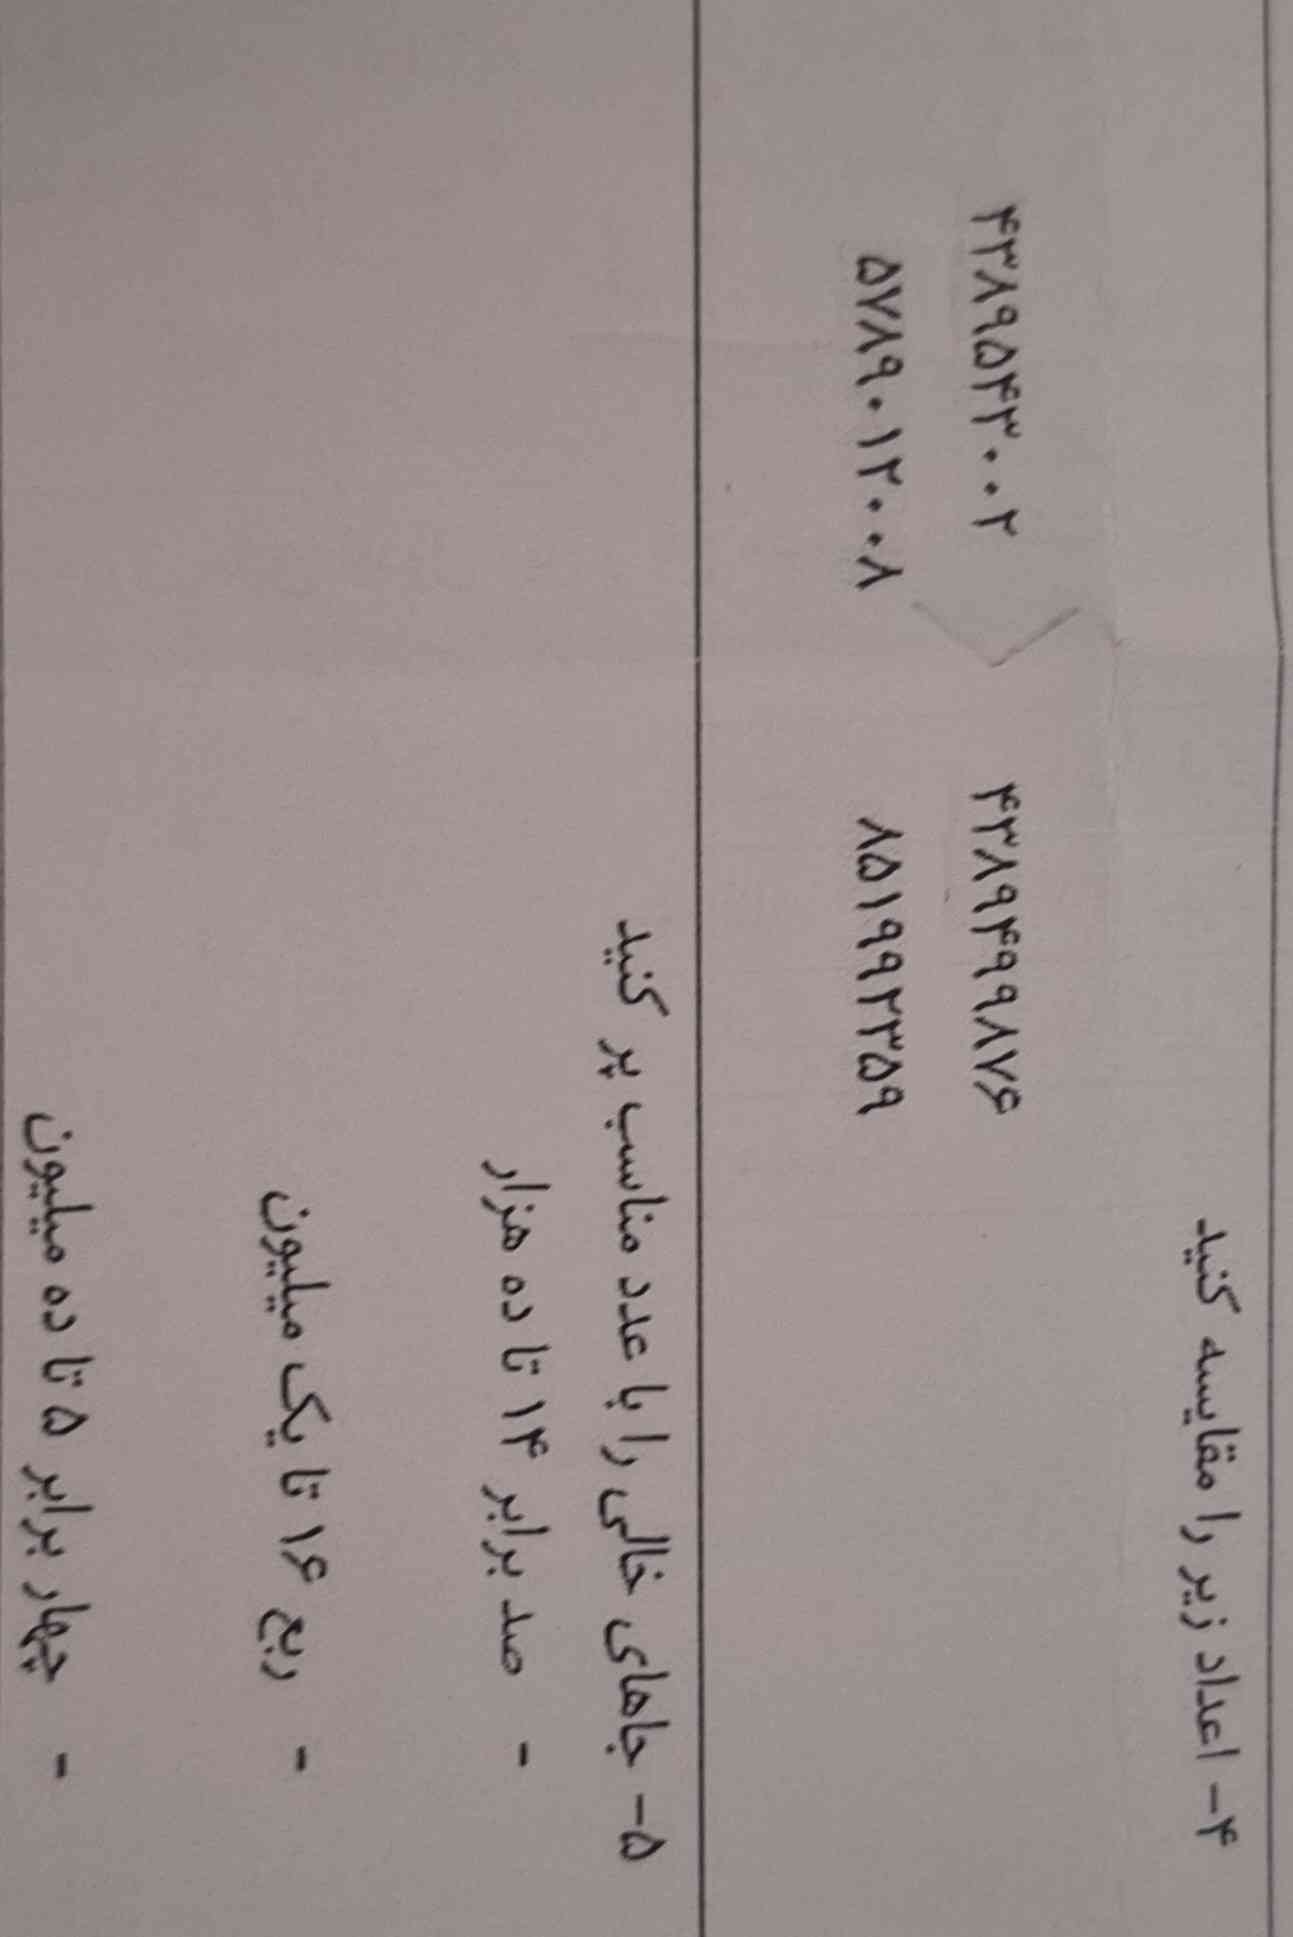 ۴- اعداد زیر را مقایسه کنید
۴۳۸۹۵۴۳۰۰۲ > ۴۳۸۹۴۹۹۸۷۶
۵۷۸۹۰۱۲۰۰۸ ۸۵۱۹۹۲۳۵۹
۵- جاهای خالی را با عدد مناسب پر کنید
- صد برابر ۱۴ تا ده هزار
- ربع ۱۶ تا یک میلیون
- چهار برابر ۵ تا ده میلیون